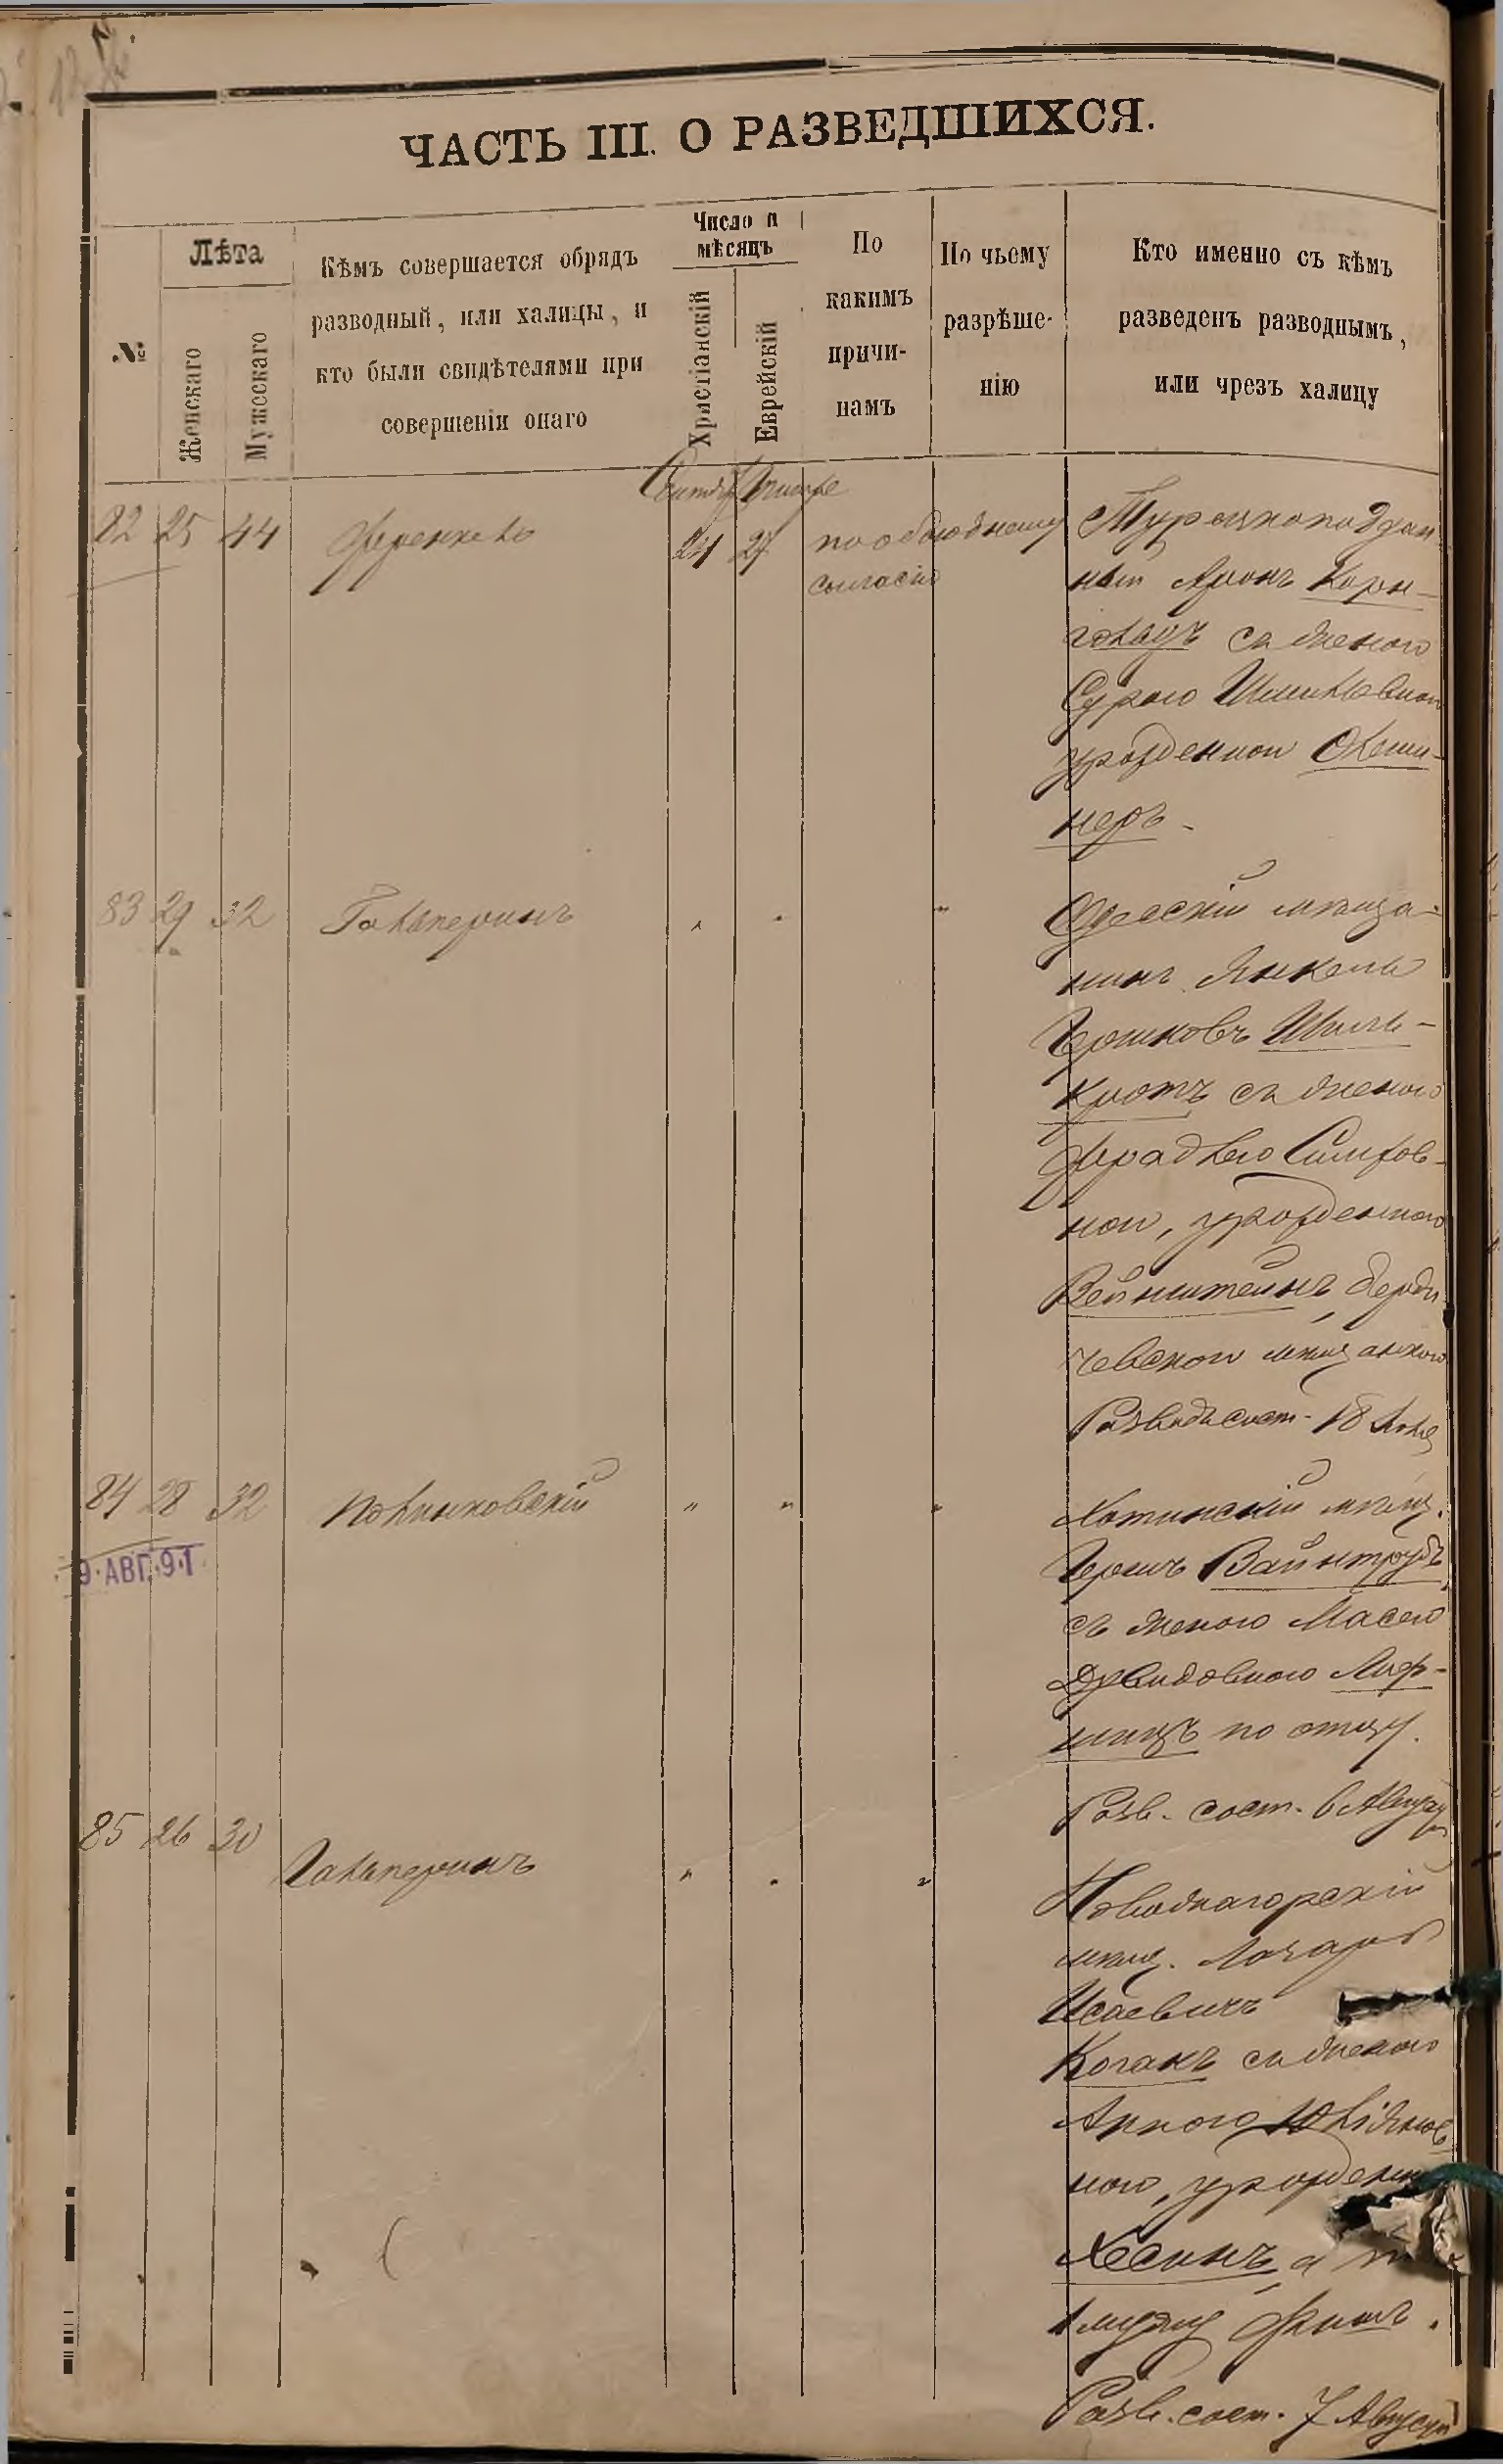 ЧАСТЬ III. О РАЗВЕДШИХСЯ.
№
Лѣта
Женскаго
Мужескаго
Кѣмъ совершается обрядъ
разводный, или халицы, и
кто были свидѣтелями при
совершеніи онаго
Число и
мѣсяцъ
Христіанскій
Еврейскій
По
какимъ
причи-
намъ
По чьему
разрѣше-
нію
Кто именно съ кѣмъ
разведенъ разводнымъ,
или чрезъ халицу
82 25 44 Френкель 24 27 по обоюдному
согласію
Турецкоподдан
ный Аронъ Корн-
гольдъ съ женою
Сурою Шмилевной
урожденной
неръ.
83 29 32 Гальперинъ " " "
Одесскій мѣща-
нинъ Янкель
Гершковъ Шиль-
кротъ съ женою
Фрадлею
ной, урожденною
Вейнштейнъ, Берди
чевской мѣщанкою
Разводъ сост. 18
84 28 32 Полинковскій " " "
9·АВГ.91
Хотинскій мѣщ.
Гершъ Вайнтрубъ
съ женою Масею
Давидовною Лиф-
шицъ по отцу.
Разв. сост. 6 Августа
85 26 30 Гальперинъ " " "
Новоднагорскій
мѣщ. Лазарь
Исаевичъ
Коганъ съ женою
Анною Юліянов
ною, урожденн
Хесинъ, а
1 мужу Финъ.
Разв. сост. 7 Августа